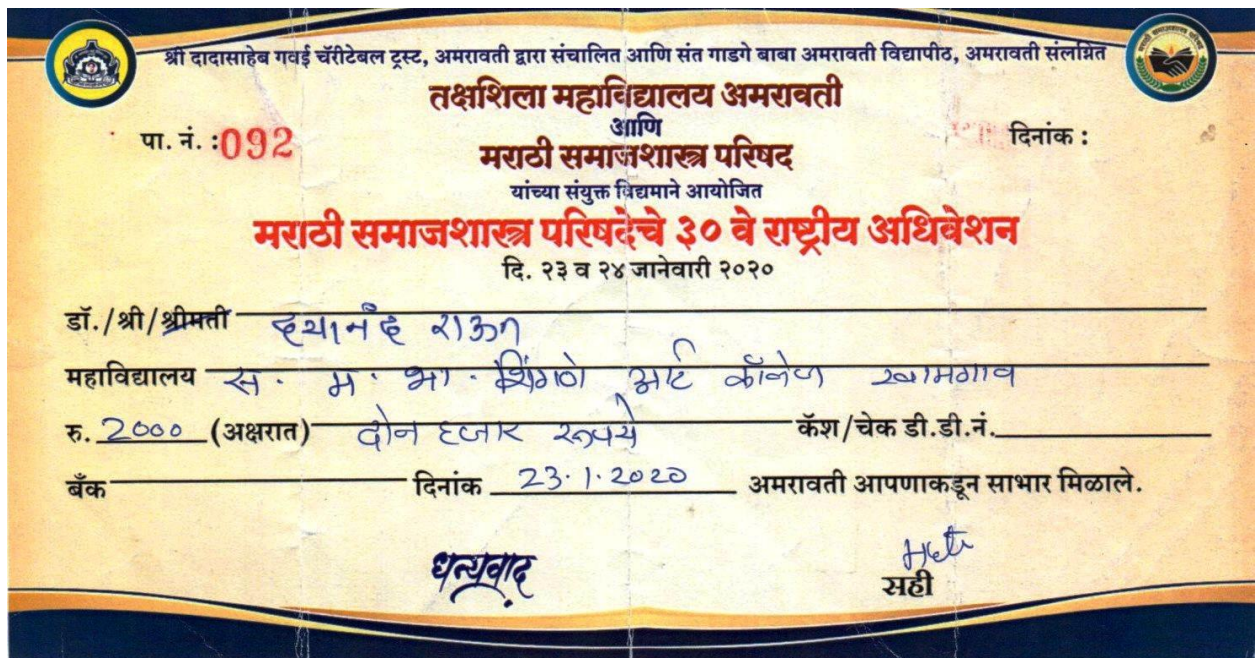 श्री दादासाहेब गवई चॅरीटेबल ट्रस्ट, अमरावती द्वारा संचालित आणि संत गाडगे बाबा अमरावती विद्यापीठ, अमरावती संलग्नित
तक्षशिला महाविद्यालय अमरावती
आणि
पा. नं. : 092 दिनांक :
मराठी समाजशास्त्र परिषद
यांच्या संयुक्त विद्यमाने आयोजित
मराठी समाजशास्त्र परिषदेचे ३० वे राष्ट्रीय अधिवेशन
दि. २३ व २४ जानेवारी २०२०
डॉ./श्री/श्रीमती दयानंद राऊत
महाविद्यालय स. म. भा. शिंगणे आर्ट कॉलेज खामगाव
रु. 2000 (अक्षरात) दोन हजार रूपये कॅश/चेक डी.डी.नं.
बँक दिनांक 23.1.2020 अमरावती आपणाकडून साभार मिळाले.
धन्यवाद
सही